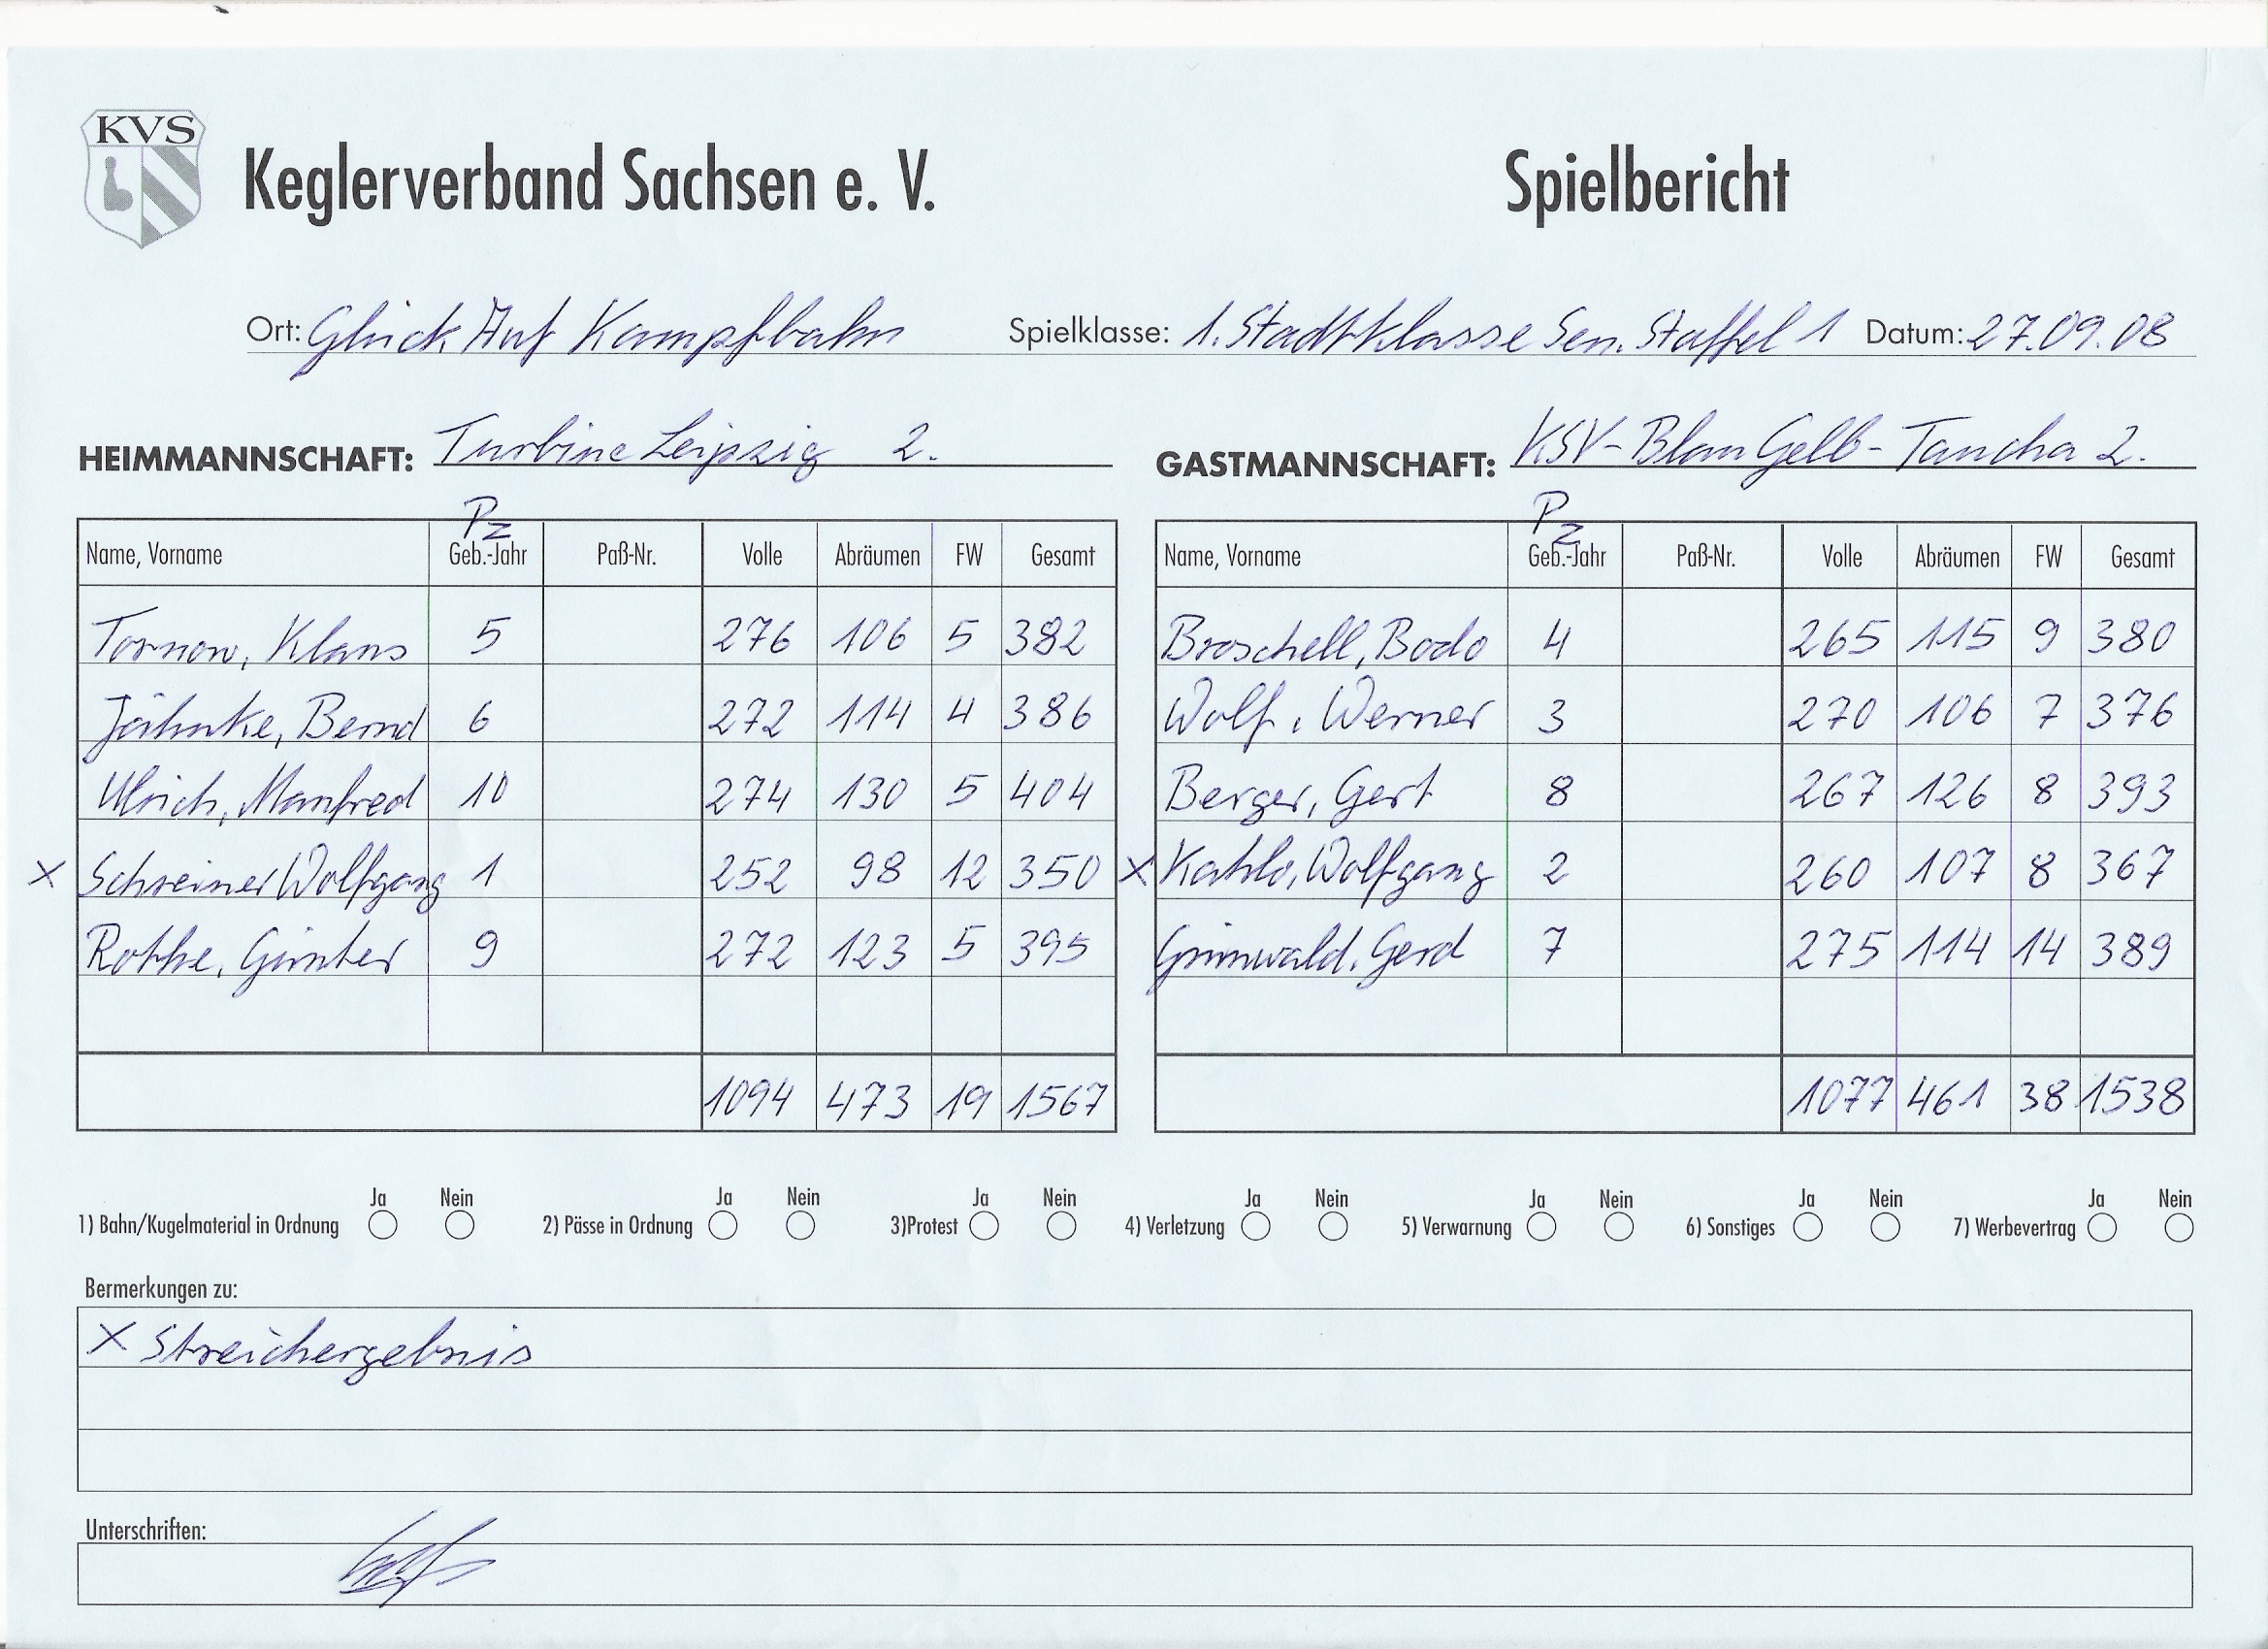 KVS
Keglerverband Sachsen e. V. Spielbericht
Ort: Glück Auf Kampfbahn Spielklasse: 1. Stadtklasse Sen. Staffel 1 Datum: 27.09.08
HEIMMANNSCHAFT: Turbine Leipzig 2. GASTMANNSCHAFT: KSV-Blau Gelb-Taucha 2.
Pz Pz
Name, Vorname Geb.-Jahr Paß-Nr. Volle Abräumen FW Gesamt Name, Vorname Geb.-Jahr Paß-Nr. Volle Abräumen FW Gesamt
Tornow, Klaus 5 276 106 5 382 Broschell, Bodo 4 265 115 9 380
Jähnke, Bernd 6 272 114 4 386 Wolf, Werner 3 270 106 7 376
Ulrich, Manfred 10 274 130 5 404 Berger, Gert 8 267 126 8 393
X Schreiner Wolfgang 1 252 98 12 350 X Kahlo, Wolfgang 2 260 107 8 367
Rothe, Günter 9 272 123 5 395 Grünwald, Gerd 7 275 114 14 389
1094 473 19 1567 1077 461 38 1538
Ja Nein Ja Nein Ja Nein Ja Nein Ja Nein Ja Nein Ja Nein
1) Bahn/Kugelmaterial in Ordnung 2) Pässe in Ordnung 3)Protest 4) Verletzung 5) Verwarnung 6) Sonstiges 7) Werbevertrag
Bermerkungen zu:
X Streichergebnis
Unterschriften: